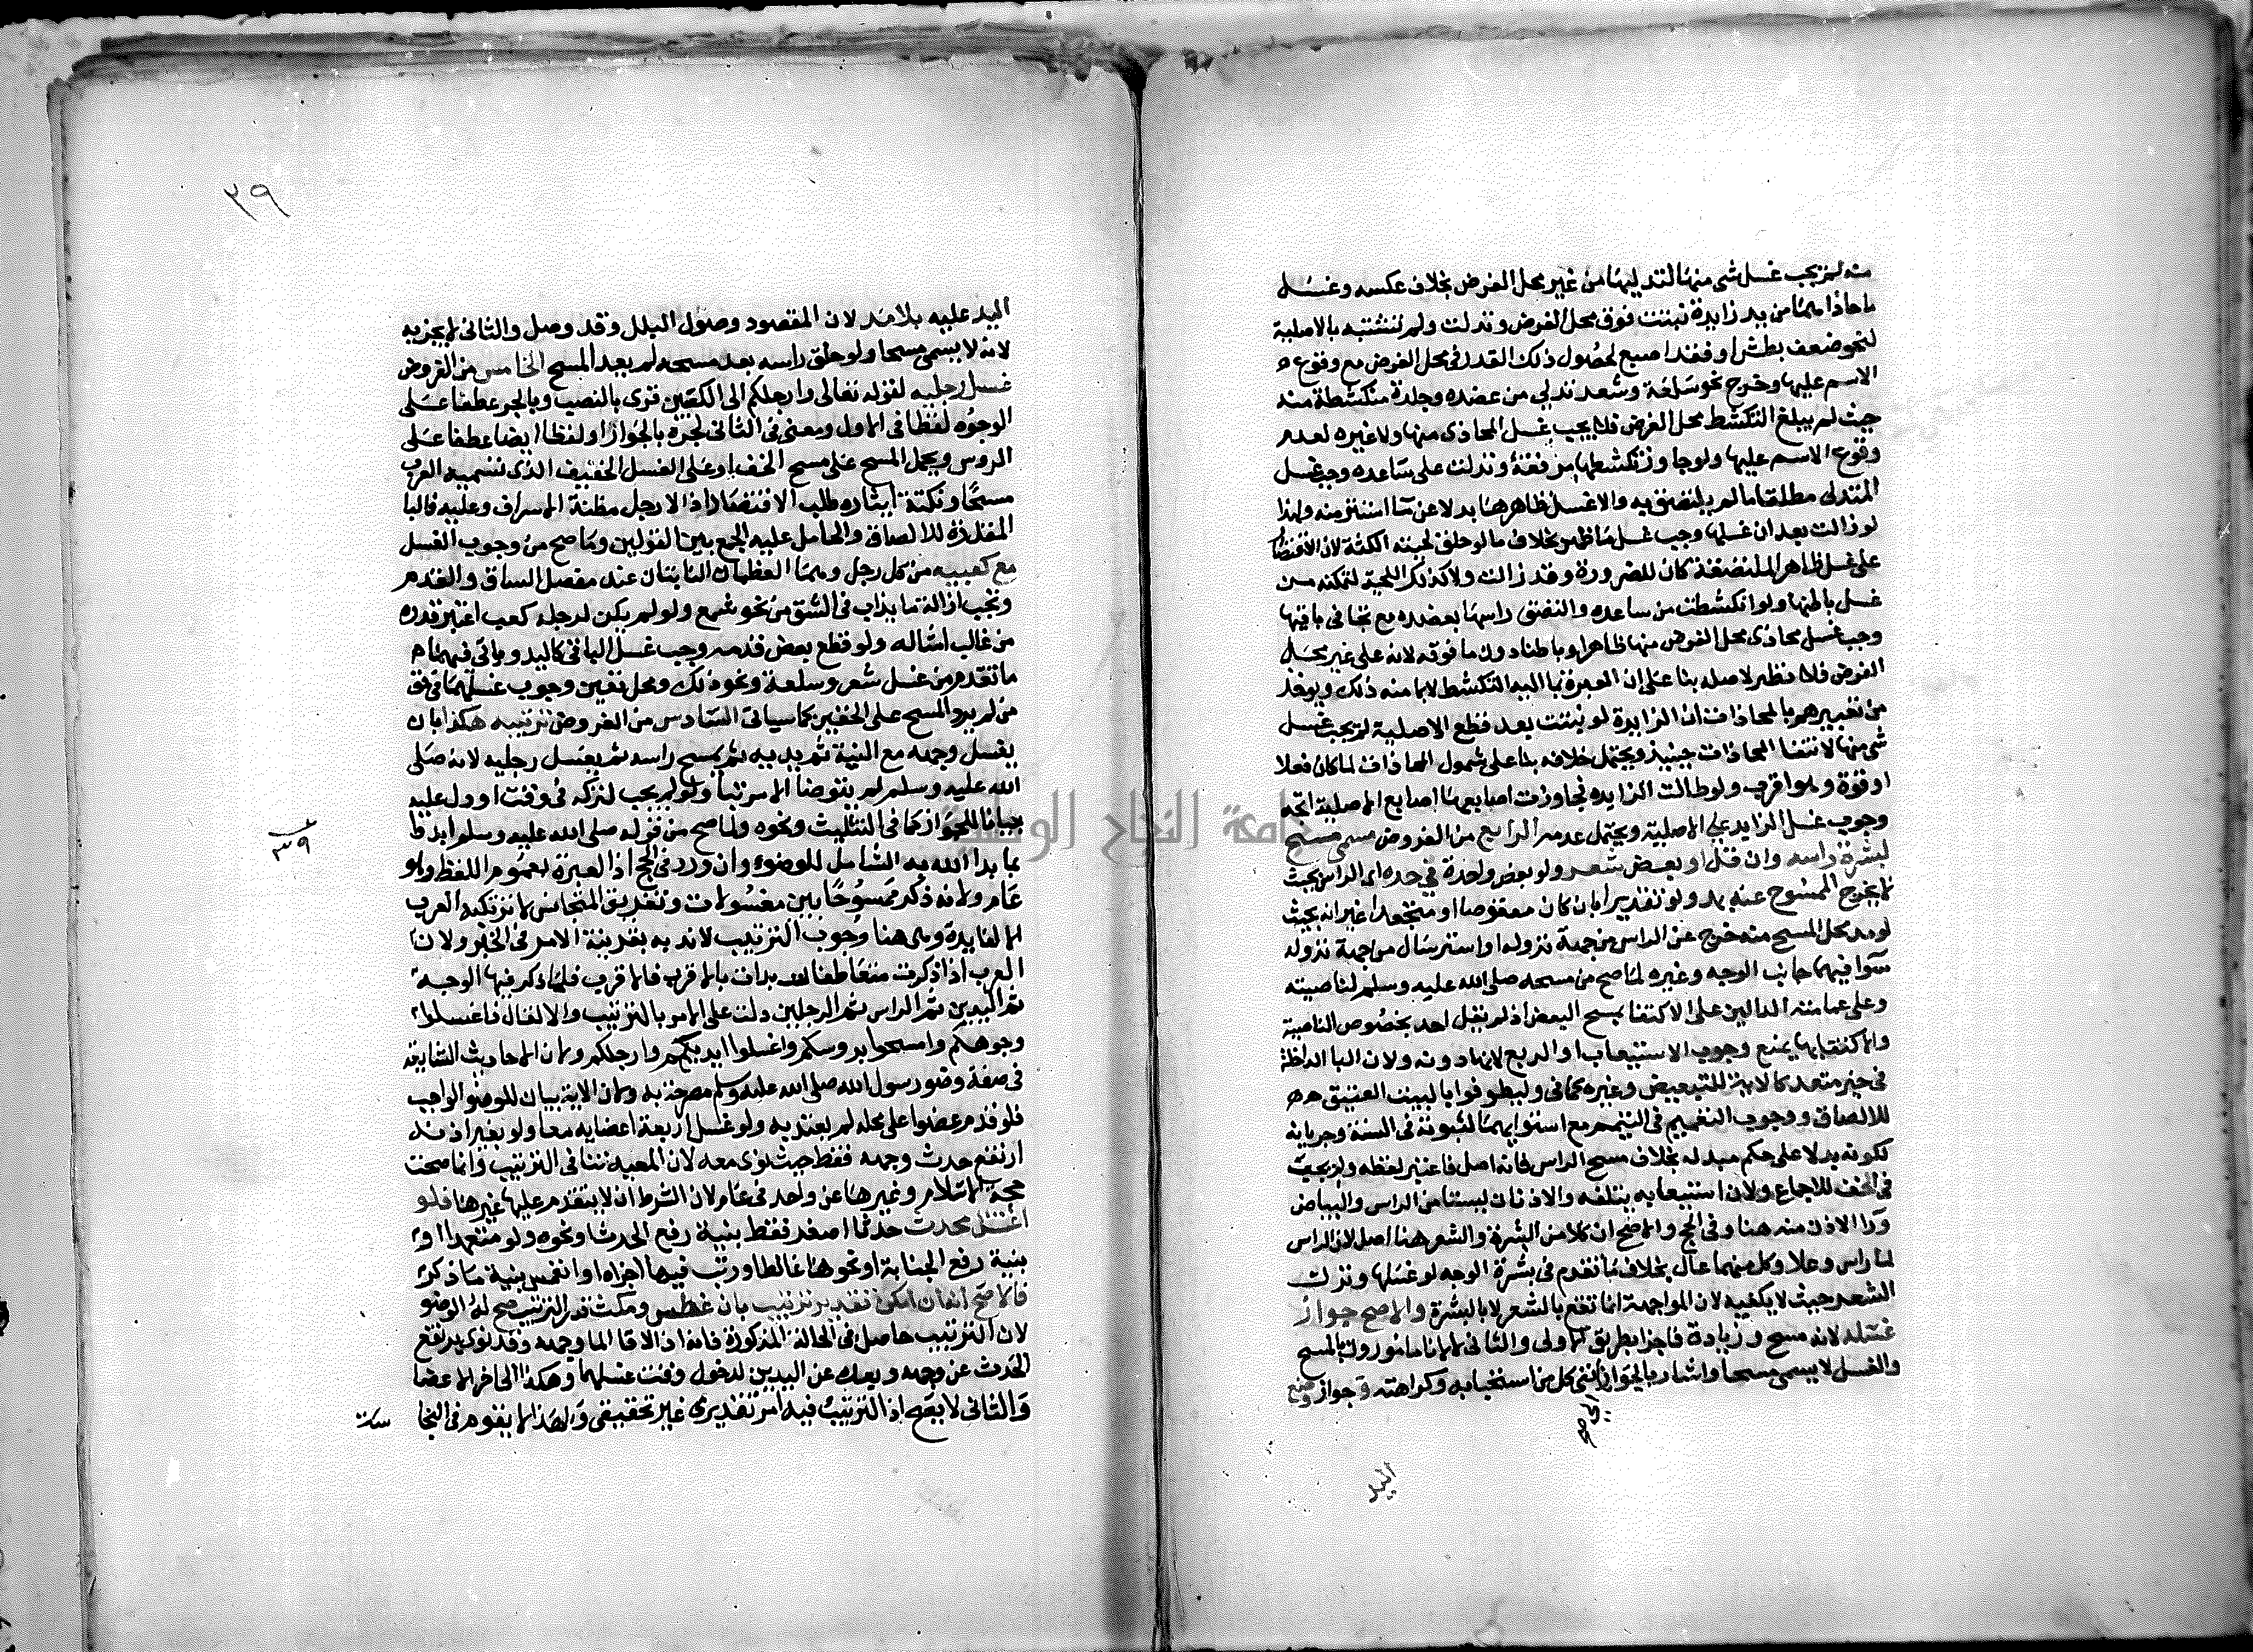 منه لم يجب غسل شي منها لتدليها من غير محل الفرض بخلاف عكسه وغسل
ما حاذاهما من يد زايدة نبتت فوق محل الفرض وتدلت ولم تشتبه بالاصلية
لنحو ضعف بطش او فقد اصبع لحصول ذلك القدر في محل الفرض مع وقوع
الاسم عليها وخرج نحو سلعة وشعر تدلي من عضده وجلدة منكشطة منه
حيث لم يبلغ التكشط محل الفرض فلا يجب غسل المحاذي منها ولا غيره لعدم
وقوع الاسم عليها ولو جاوز تكشطها مرفقه وتدلت على ساعده وجب غسل
المتدلى مطلقا ما لم يلتصق به والا غسل ظاهرها بدلا عن ما استتر منه ولهذا
لو زالت بعد ان غسلها وجب غسل ما ظهر بخلاف ما لو حلق لحيته الكثة لان الاقتصار
على غسل ظاهر الملتصقة كان للضرورة وقد زالت ولا كذلك اللحية لتمكنه من
غسل باطنها ولو انكشطت من ساعده والتصق راسها بعضده مع تجافي باقيها
وجب غسل محاذي محل الفرض منها ظاهرا وباطنا دون ما فوقه لانه على غير محل
الفرض فلا نظر لاصله بنا على ان العبرة بما اليه التكشط لا بما منه ذلك ويوخذ
من تعبيرهم بالمحاذات ان الزايدة لو نبتت بعد قطع الاصلية لم يجب غسل
شي منها لانتفا المحاذات حينيذ ويحتمل خلافه بنا على شمول المحاذات لما كان فعلا
او قوة وهو اقرب ولو طالت الزايدة فجاوزت اصابعها اصابع الاصلية اتجه
وجوب غسل الزايد على الاصلية ويحتمل عدمه الرابع من الفروض مسمى مسح
لبشرة راسه وان قل او بعض شعر ولو بعض واحدة في حده اي الراس بحيث
لا يخرج الممسوح عنه بمد ولو تقديرا بان كان معقوصا او متجعدا غير انه بحيث
لو مد محل المسح منه خرج عن الراس من جهة نزوله او استرسال من جهة نزوله
سوا فيهما جانب الوجه وغيره لما صح من مسحه صلى الله عليه وسلم لناصيته
وعلى عمامته الدالين على الاكتفا بمسح البعض اذ لم يقل احد بخصوص الناصية
والاكتفا بها يمنع وجوب الاستيعاب او الربع لانها دونه ولان البا الداخلة
في حيز متعدد كالاية للتبعيض وغيره كما في وليطوفوا بالبيت العتيق
للالصاق ووجوب التعميم في التيمم مع استوايهما لثبوته في السنة وجريانه
لكونه بدلا على حكم مبدله بخلاف مسح الراس فانه اصل فاعتبر لفظه ولم يجب
في الخف للاجماع ولان استيعابه يتلفه والاذنان ليستا من الراس والبياض
ورا الاذن منه هنا وفي الحج والاصح ان كلا من البشرة والشعر هنا اصل لان الراس
لما راس وعلا وكل منهما عال بخلاف ما تقدم في بشرة الوجه لو غسلها وترك
الشعر حيث لا يكفيه لان المواجهة انما تقع بالشعر لا بالبشرة والاصح جواز
غسله لانه مسح وزيادة فاجزا بطريق الاولى والثاني لا لانا مامورون بالمسح
والغسل لا يسمى مسحا واشار بالجواز الى نفي كل من استحبابه وكراهته وجواز وضع
اليد
اليد عليه بلا مد لان المقصود وصول البلل وقد وصل والثاني لا يجزيه
لانه لا يسمى مسحا ولو حلق راسه بعد مسحه لم يعد المسح الخامس من الفروض
غسل رجليه لقوله تعالى وارجلكم الى الكعبين قرى بالنصب وبالجر عطفا على
الوجوه لفظا في الاول ومعنى في الثاني لجره بالجوار او لفظا ايضا عطفا على
الروس ويحمل المسح على مسح الخف او على الغسل الخفيف الذي تسميه العرب
مسحا ونكتة ايثاره طلب الاقتصاد اذ الارجل مظنة الاسراف وعليه فالبا
المقدرة للالصاق والحامل عليه الجمع بين القولين وما صح من وجوب الغسل
مع كعبيه من كل رجل وهما العظمان الناتيان عند مفصل الساق والقدم
وتجب ازالة ما يذاب في الشق من نحو شمع ولو لم يكن لرجله كعب اعتبر قدره
من غالب امثاله ولو قطع بعض قدمه وجب غسل الباقي كاليد وياتي فيهما
ما تقدم من غسل شعر وسلعة ونحو ذلك ومحل تعين وجوب غسلهما في حق
من لم يرد المسح على الخفين كما سياتي السادس من الفروض ترتيبه هكذا بان
يغسل وجهه مع النية ثم يديه ثم يمسح راسه ثم يغسل رجليه لانه صلى
الله عليه وسلم لم يتوضا الا مرتبا ولو لم يجب لتركه في وقت او دل عليه
بيانا للجواز كما في التثليث ونحوه ولما صح من قوله صلى الله عليه وسلم ابدوا
بما بدا الله به الشامل للوضوء وان ورد في الحج اذ العبرة بعموم اللفظ وهو
عام ولانه ذكر ممسوحا بين مغسولات وتفريق المتجانس لا ترتكبه العرب
الا لفايدة وهي هنا وجوب الترتيب لا ندبه بقرينة الامر في الخبر ولان
العرب اذا ذكرت متعاطفات بدات بالاقرب فالاقرب فلما ذكر فيها الوجه
ثم اليدين ثم الراس ثم الرجلين دلت على الامر بالترتيب والا لقال فاغسلوا
وجوهكم وامسحوا بروسكم واغسلوا ايديكم وارجلكم ولان الاحاديث السابقة
في صفة وضو رسول الله صلى الله عليه وسلم مصرحة به ولان الاية بيان للوضو الواجب
فلو قدم عضوا على محله لم يعتد به ولو غسل اربعة اعضايه معا ولو بغير اذنه
ارتفع حدث وجهه فقط حيث نوى معه لان المعية تنافي الترتيب وانما صحت
حجة الاسلام وغيرها عن واحد في عام لان الشرط ان لا يتقدم عليها غيرها فلو
اغتسل محدث حدثا اصغر فقط بنية رفع الحدث او نحوه ولو متعمدا او
بنية رفع الجنابة او نحوها غالطا ورتب فيها اجزاه او انغمس بنية ما ذكر
فالاصح انه ان امكن تقدير ترتيب بان غطس ومكث قدر الترتيب صح له الوضو
لان الترتيب حاصل في الحالة المذكورة فانه اذا لاقا الما وجهه وقد نوى يرتفع
الحدث عن وجهه وبعده عن اليدين لدخول وقت غسلهما وهكذا الى اخر الاعضا
والثاني لا يصح اذ الترتيب فيه امر تقديري غير تحقيقي ولهذا لا يقوم في النجا
سة
٣٩
٣٩
جامعة النجاح الوطنية